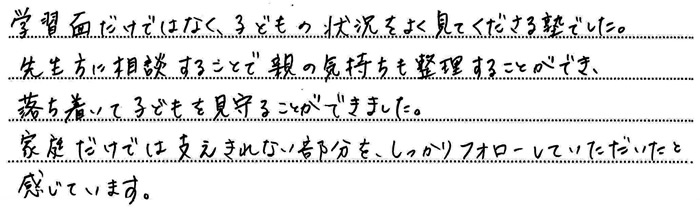 学習面だけではなく、子どもの状況をよく見てくださる塾でした。
先生方に相談することで親の気持ちも整理することができ、
落ち着いて子どもを見守ることができました。
家庭だけでは支えきれない部分を、しっかりフォローしていただいたと
感じています。